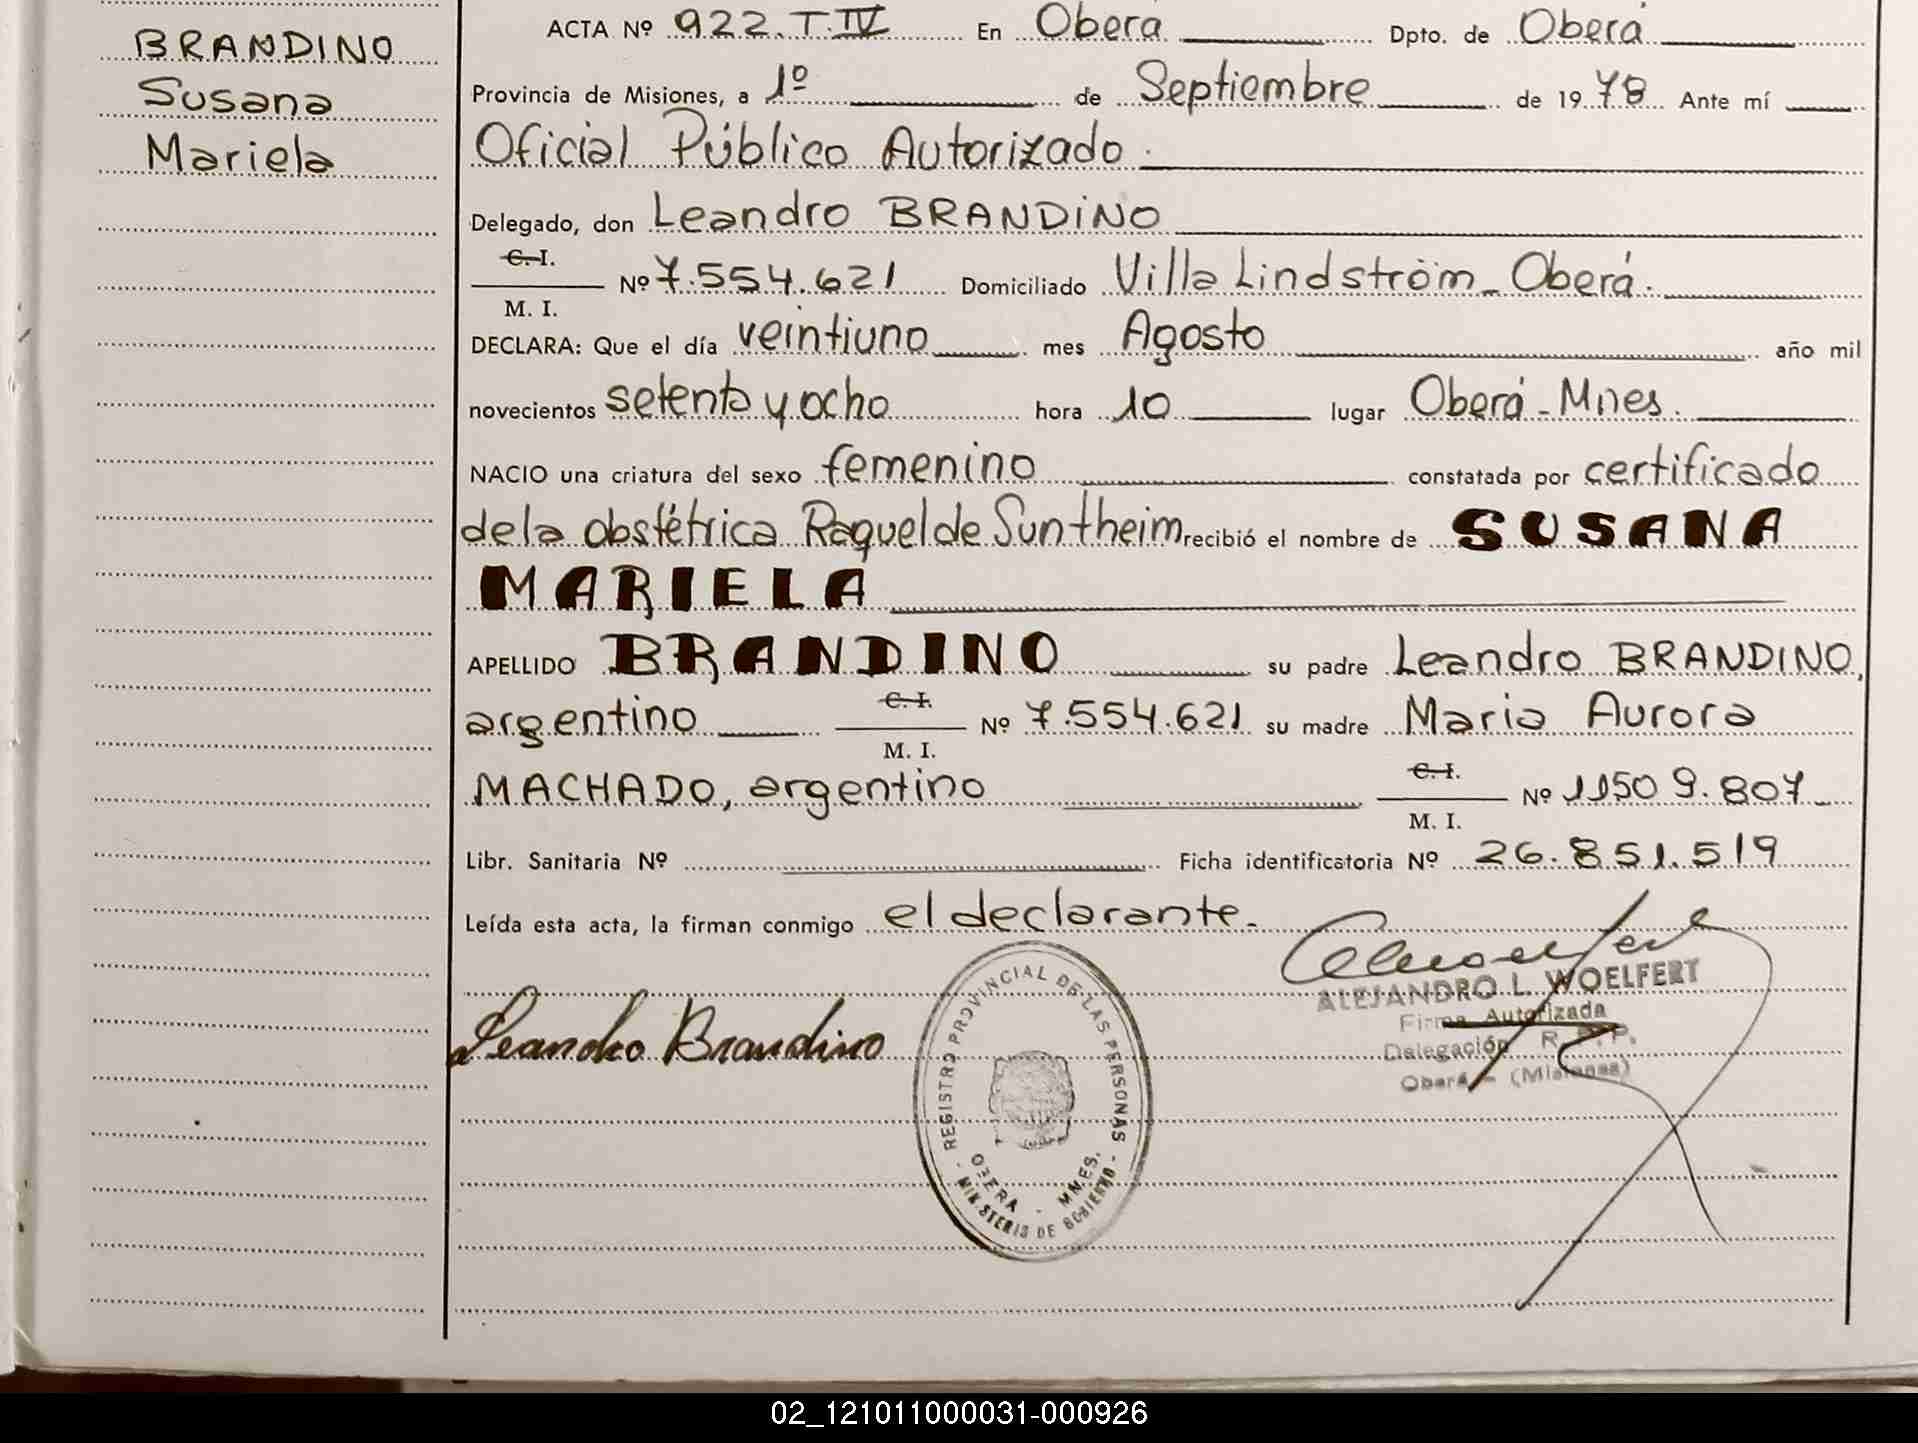 BRANDINO
Susana
Mariela
ACTA Nº 922.T.IV En Oberá Dpto. de Oberá
Provincia de Misiones, a 1º de Septiembre de 1978 Ante mí
Oficial Público Autorizado.
Delegado, don Leandro BRANDINO
C. I.
M. I.
Nº 7.554.621 Domiciliado Villa Lindström_Oberá.
DECLARA: Que el día veintiuno mes Agosto año mil
novecientos setenta y ocho hora 10 lugar Oberá-Mnes.
NACIO una criatura del sexo femenino constatada por certificado
de la obstétrica Raquel de Suntheim recibió el nombre de SUSANA
MARIELA
APELLIDO BRANDINO su padre Leandro BRANDINO,
argentino C. I.
M. I.
Nº 7.554.621 su madre Maria Aurora
MACHADO, argentino C. I.
M. I.
Nº 11509.807
Libr. Sanitaria Nº Ficha identificatoria Nº 26.851.519
Leída esta acta, la firman conmigo el declarante.-
Leandro Brandino
REGISTRO PROVINCIAL DE LAS PERSONAS
OBERA - MNES.
- MINISTERIO DE GOBIERNO -
ALEJANDRO L. WOELFERT
Firma Autorizada
Delegación R. P. P.
Oberá - (Misiones)
02_121011000031-000926